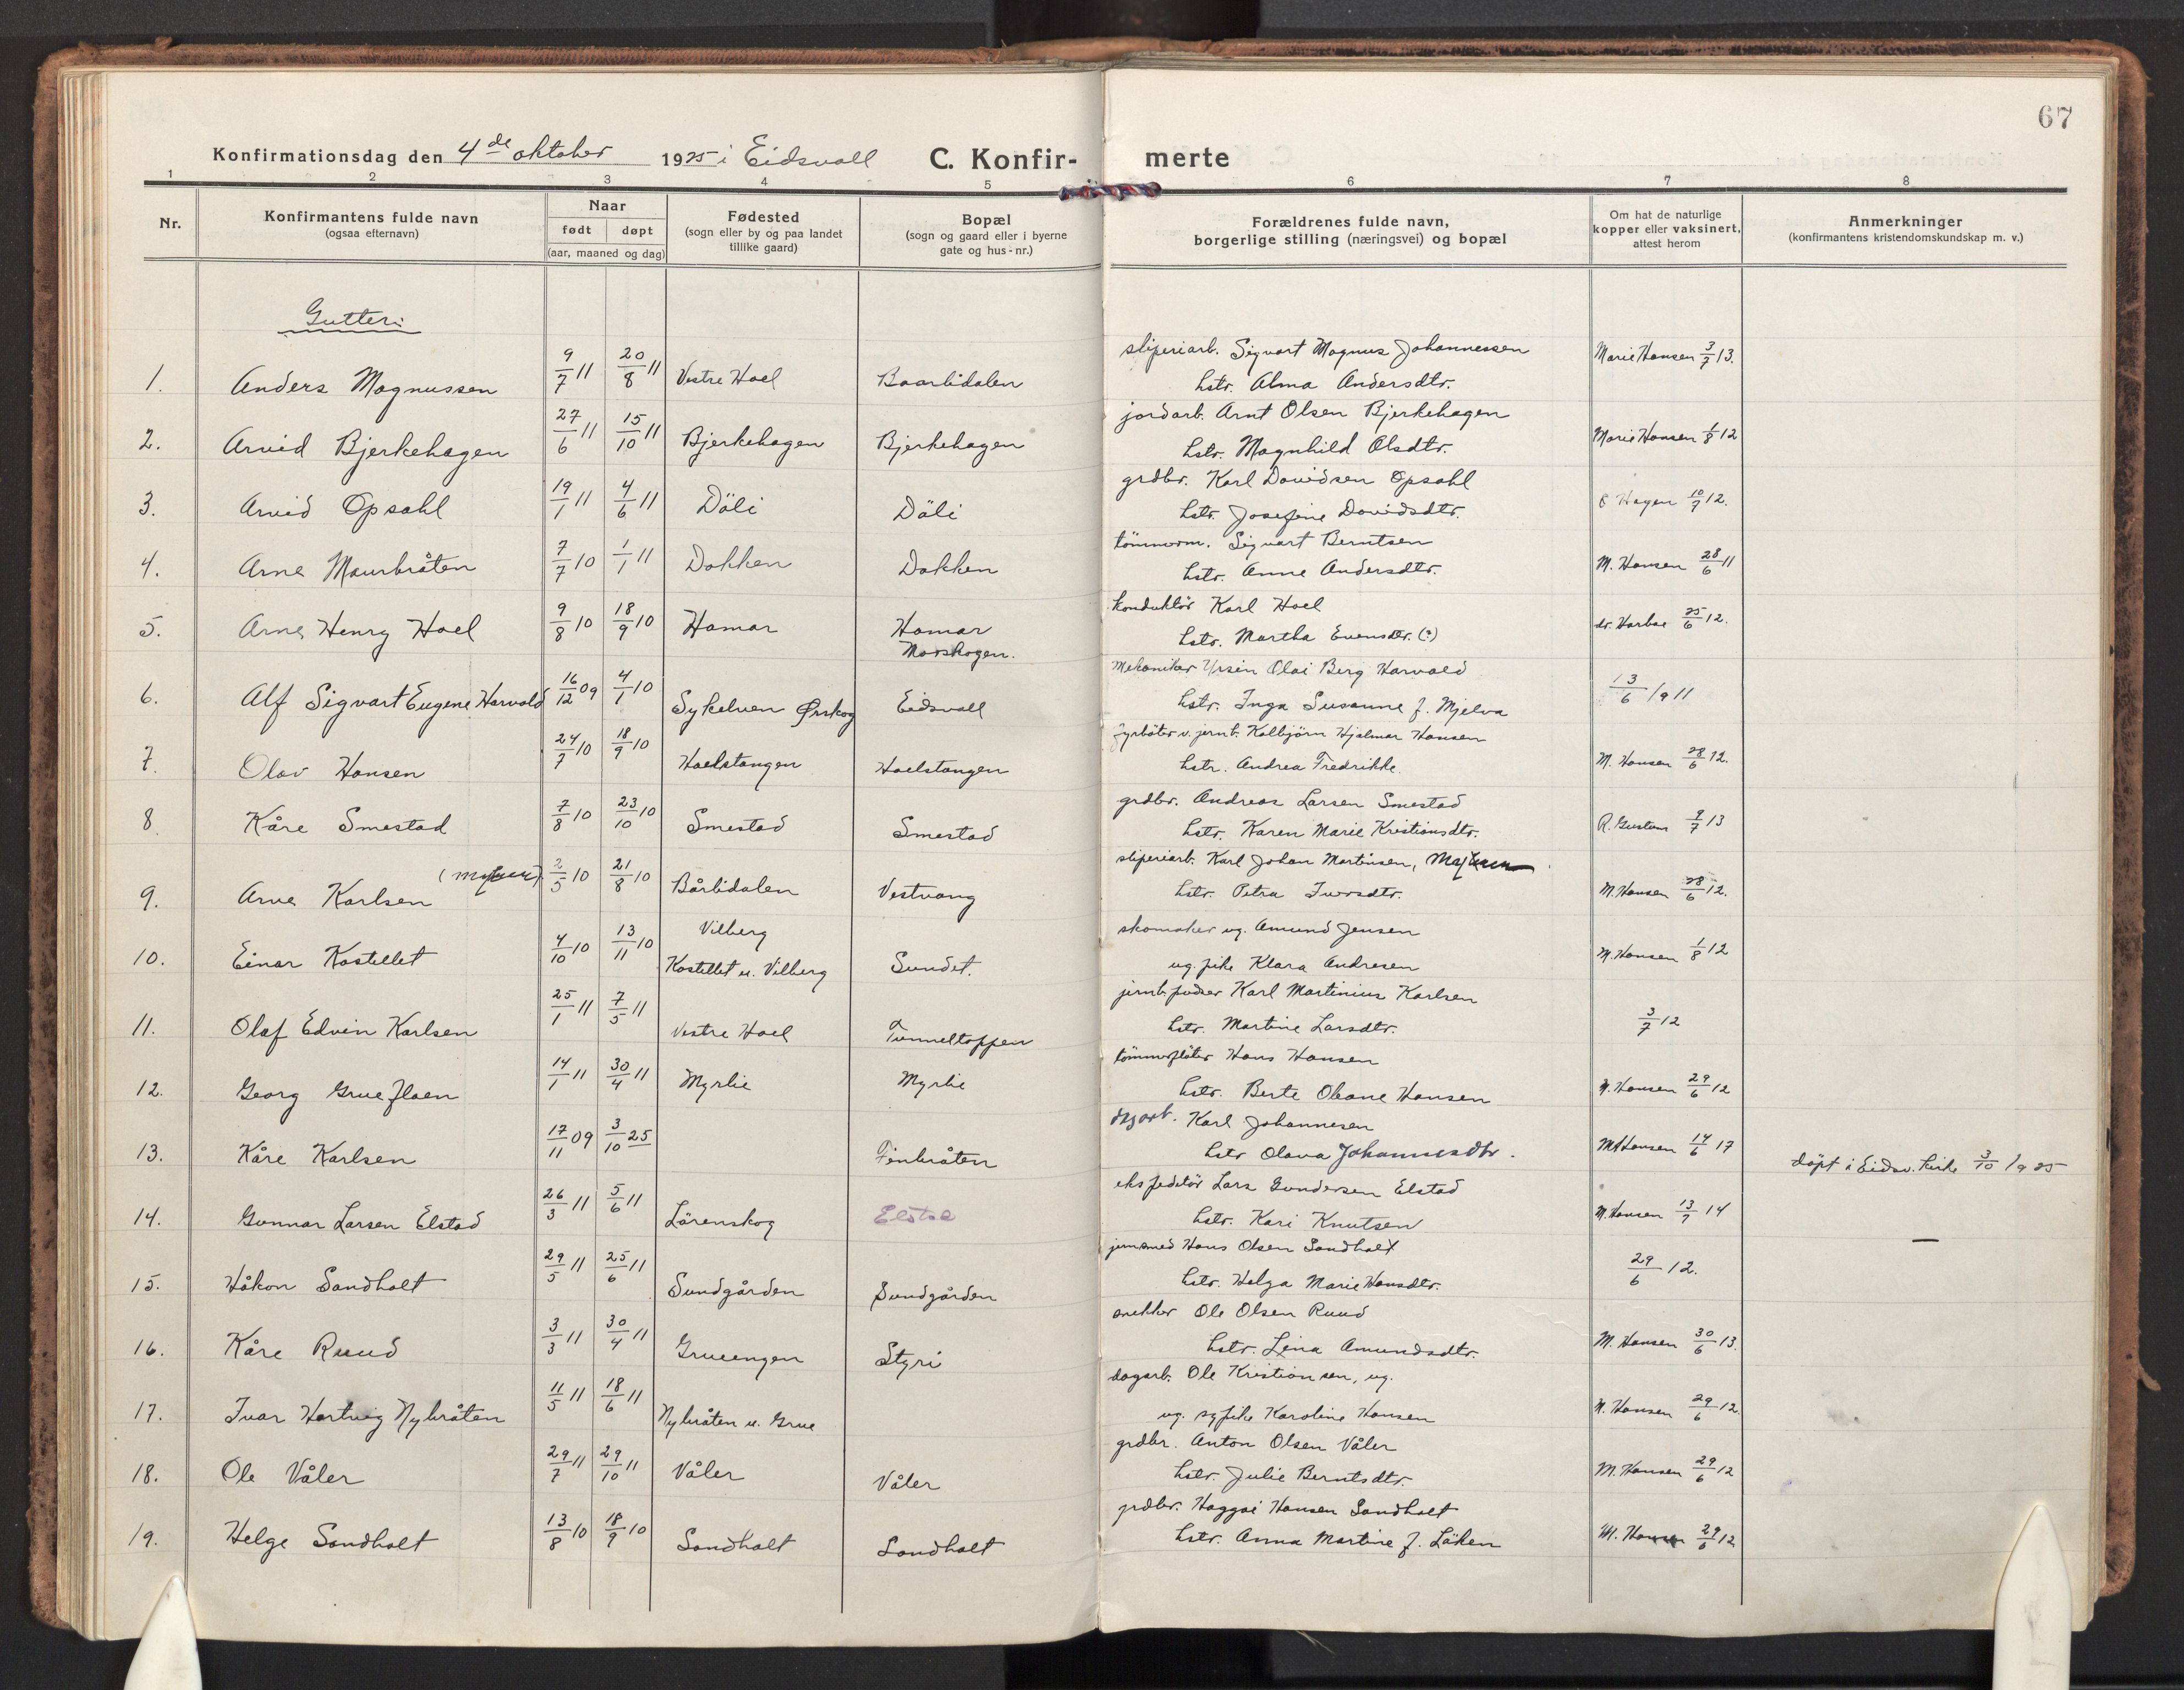 67
Konfirmationsdag den 4de oktober 1925 i Eidsvoll C. Konfir- merte
1 2 3 4 5 6 7 8
Nr. Konfirmantens fulde navn (ogsaa efternavn) Naar født døpt (aar, maaned og dag) Fødested (sogn eller by og paa landet tillike gaard) Bopæl (sogn og gaard eller i byerne gate og hus-nr.) Forældrenes fulde navn, borgerlige stilling (næringsvei) og bopæl Om hat de naturlige kopper eller vaksinert, attest herom Anmerkninger (konfirmantens kristendomskundskap m. v.)
Gutter:
sliperiarb. Sigvart Magnus Johannessen
1. Anders Magnussen 9/7 11 20/8 11 Vestre Hoel Baarlidalen hstr. Alma Andersdtr. Marie Hansen 3/7 13.
jordarb. Arnt Olsen Bjerkehagen
2. Arvid Bjerkehagen 27/6 11 15/10 11 Bjerkehagen Bjerkehagen hstr. Magnhild Olsdtr. Marie Hansen 1/8 12
grdbr. Karl Davidsen Opsahl
3. Arvid Opsahl 19/1 11 4/6 11 Döli Döli hstr. Josefine Davidsdtr. Hagen 10/7 12.
tömmerm. Sigvart Berntsen
4. Arne Maurbråten 7/7 10 1/1 11 Dokken Dokken hstr. Anne Andersdtr. M. Hansen 28/6 11
konduktör Karl Hoel
5. Arne Henry Hoel 9/8 10 18/9 10 Hamar Hamar hstr. Martha Evensdtr. (?) dr. Harboe 25/6 12.
Morskogen.
Mekaniker Ursin Olai Berg Harvold
6. Alf Sigvart Eugene Harvold 16/12 09 4/1 10 Sykelven Ørskog Eidsvoll hstr. Inga Susanne f. Mjelva 13/6 1911
fyrböter v. jernb. Kolbjörn Hjalmar Hansen
7. Olav Hansen 24/7 10 18/9 10 Hoelstangen Hoelstangen hstr. Andrea Fredrikke. M. Hansen 28/6 12.
grdbr. Andreas Larsen Smestad
8. Kåre Smestad 7/8 10 23/10 10 Smestad Smestad hstr. Karen Marie Kristiansdtr. R. Gustum 9/7 13
sliperiarb. Karl Johan Martinsen,
9. Arve Karlsen 2/5 10 21/8 10 Bårlidalen Vestvang hstr. Petra Iversdtr. M. Hansen 28/6 12.
Vilberg skomaker ug. Amund Jensen
10. Einar Kastellet 4/10 10 13/11 10 Kastellet u. Vilberg Sundet. ug. pike Klara Andresen M. Hansen 1/8 12
jernb. pudser Karl Martinius Karlsen
11. Olaf Edvin Karlsen 25/1 11 7/5 11 Vestre Hoel Tunneltoppen hstr. Martine Larsdtr. 3/7 12
tömmerflöter Hans Hansen
12. Georg Grueflaen 14/1 11 30/4 11 Myrlie Myrlie hstr. Berte Oleane Hansen M. Hansen 29/6 12
dagarb. Karl Johannesen
13. Kåre Karlsen 17/11 09 3/10 25 Finbråten hstr Olava Johannesdtr. M Hansen 14/6 17 döpt i Eidsv. kirke 3/10 1925
ekspeditör Lars Gundersen Elstad
14. Gunnar Larsen Elstad 26/3 11 5/6 11 Lörenskog Elstad hstr. Kari Knutsen M. Hansen 13/7 14
jernsmed Hans Olsen Sandholt —
15. Håkon Sandholt 29/5 11 25/6 11 Sundgården Sundgården hstr. Helga Marie Hansdtr. 29/6 12.
snekker Ole Olsen Ruud
16. Kåre Ruud 3/3 11 30/4 11 Grueengen Styri hstr. Lina Amundsdtr. M. Hansen 30/6 13.
dagarb. Ole Kristiansen, ug.
17. Ivar Hartvig Nybråten 11/5 11 18/6 11 Nybråten u. Grue ug. sypike Karoline Hansen M. Hansen 29/6 12.
grdbr. Anton Olsen Våler
18. Ole Våler 29/7 11 29/10 11 Våler Våler hstr. Julie Berntsdtr. M. Hansen 29/6 12
grdbr. Haggai Hansen Sandholt
19. Helge Sandholt 13/8 10 18/9 10 Sandholt Sandholt hstr. Anna Martine f. Löken M. Hansen 29/6 12